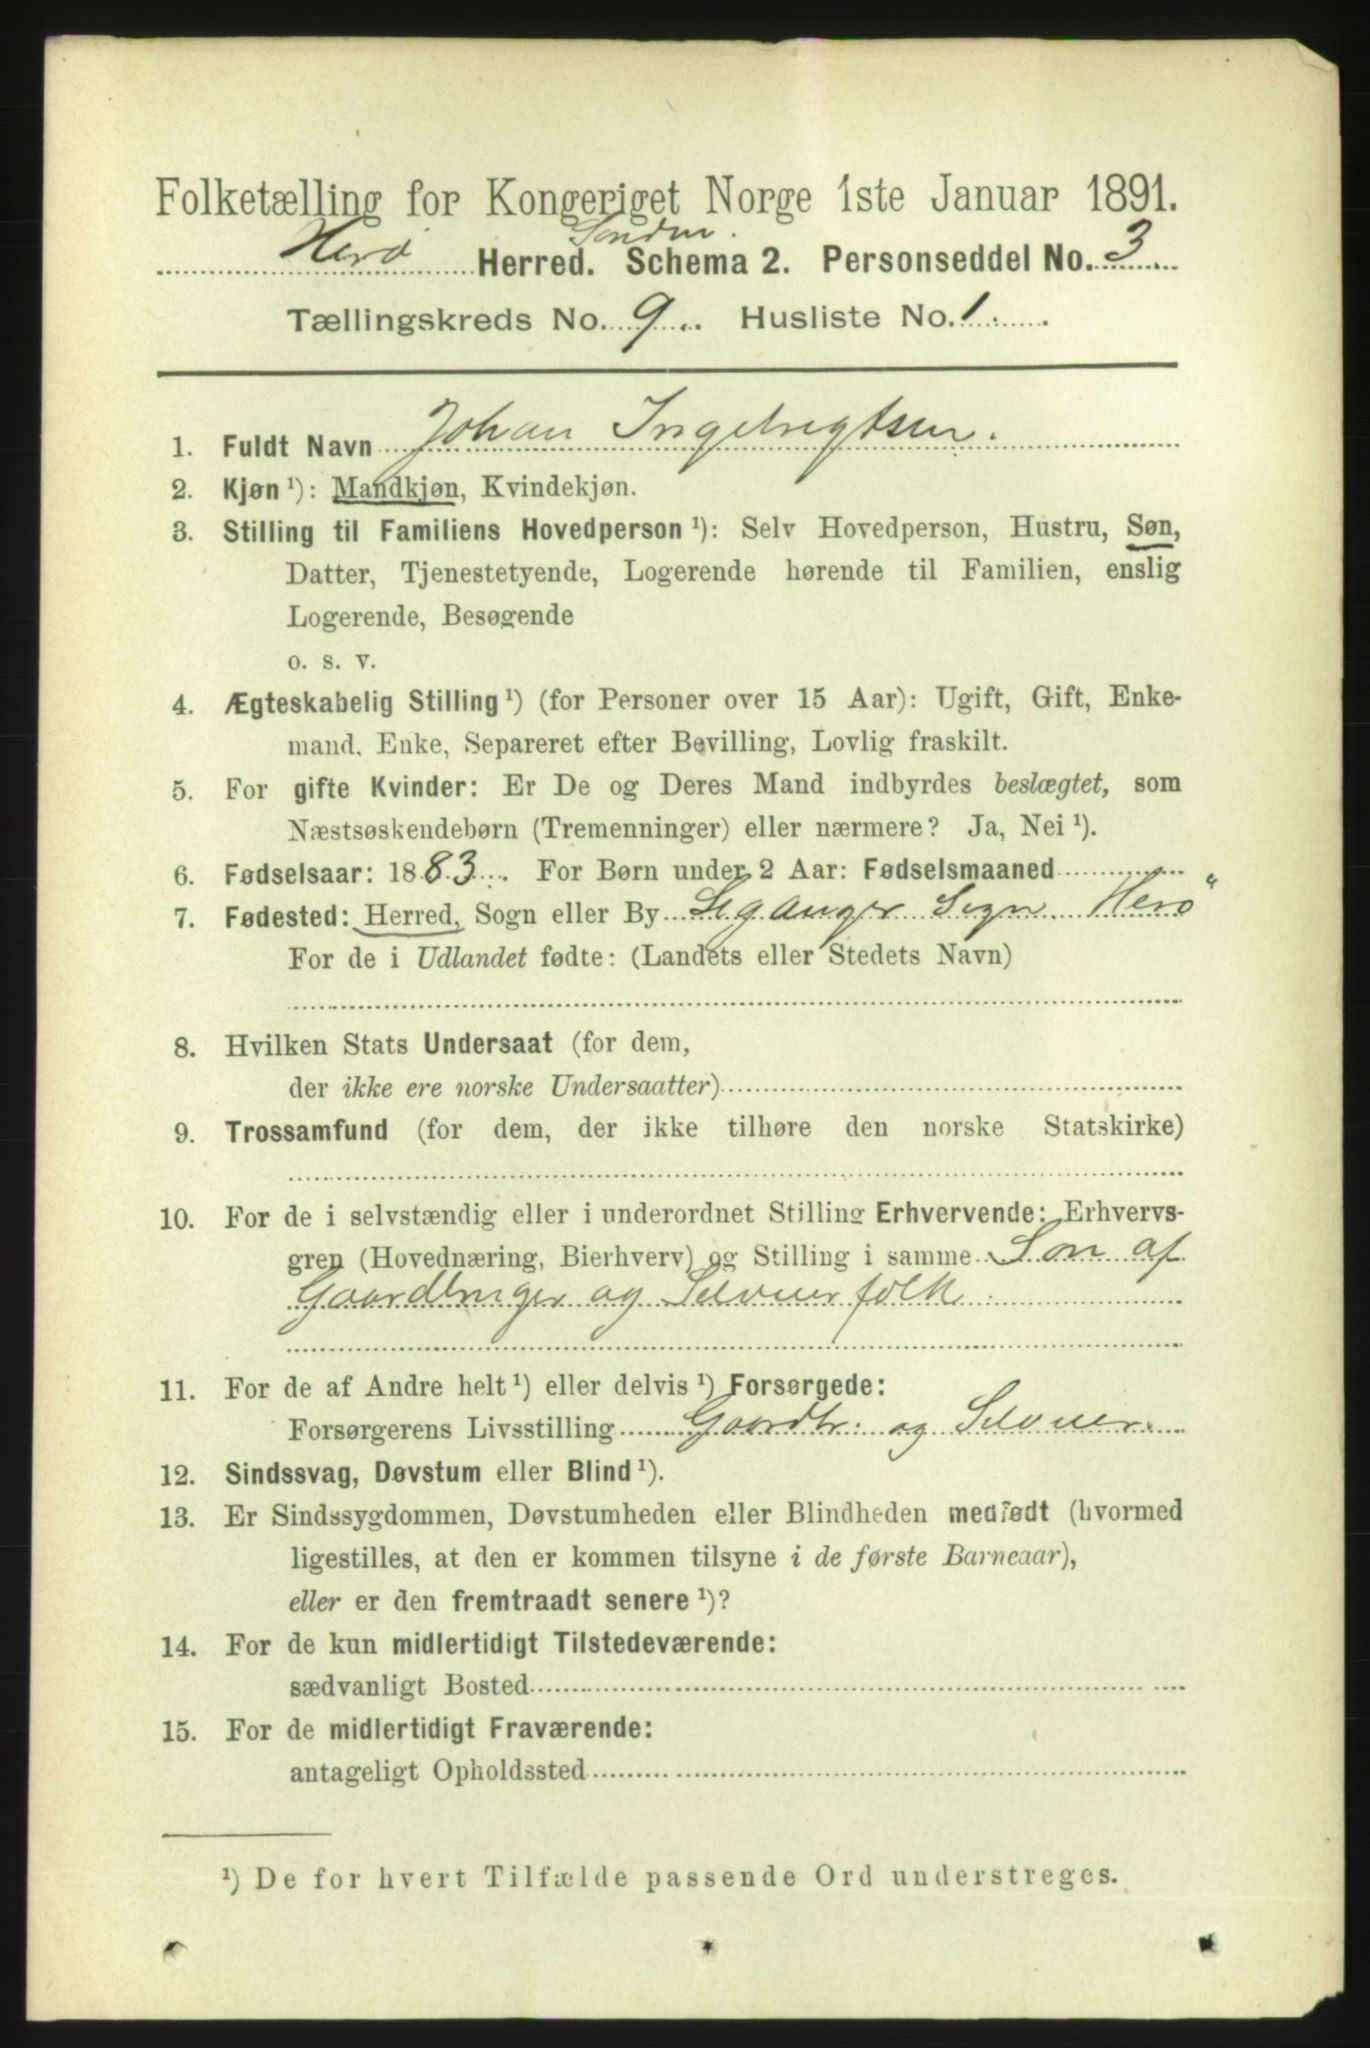 Folketælling for Kongeriget Norge 1ste Januar 1891.
Herö Søndm. Herred. Schema 2. Personseddel No. 3
Tællingskreds No. 9 Husliste No. 1.
1. Fuldt Navn Johan Ingebrigtsen.
2. Kjøn ¹): Mandkjøn, Kvindekjøn.
3. Stilling til Familiens Hovedperson ¹): Selv Hovedperson, Hustru, Søn,
Datter, Tjenestetyende, Logerende hørende til Familien, enslig
Logerende, Besøgende
o. s. v.
4. Ægteskabelig Stilling ¹) (for Personer over 15 Aar): Ugift, Gift, Enke-
mand, Enke, Separeret efter Bevilling, Lovlig fraskilt.
5. For gifte Kvinder: Er De og Deres Mand indbyrdes beslægtet, som
Næstsøskendebørn (Tremenninger) eller nærmere? Ja, Nei ¹).
6. Fødselsaar: 1883. For Børn under 2 Aar: Fødselsmaaned
7. Fødested: Herred, Sogn eller By Leganger Sogn Herö
For de i Udlandet fødte: (Landets eller Stedets Navn)
8. Hvilken Stats Undersaat (for dem,
der ikke ere norske Undersaatter)
9. Trossamfund (for dem, der ikke tilhøre den norske Statskirke)
10. For de i selvstændig eller i underordnet Stilling Erhvervende: Erhvervs-
gren (Hovednæring, Bierhverv) og Stilling i samme Søn af
Gaardbruger og Selveier folk
11. For de af Andre helt ¹) eller delvis ¹) Forsørgede:
Forsørgerens Livsstilling Gaardbr. og Selveier.
12. Sindssvag, Døvstum eller Blind ¹).
13. Er Sindssygdommen, Døvstumheden eller Blindheden medfødt (hvormed
ligestilles, at den er kommen tilsyne i de første Barneaar),
eller er den fremtraadt senere ¹)?
14. For de kun midlertidigt Tilstedeværende:
sædvanligt Bosted
15. For de midlertidigt Fraværende:
antageligt Opholdssted
¹) De for hvert Tilfælde passende Ord understreges.